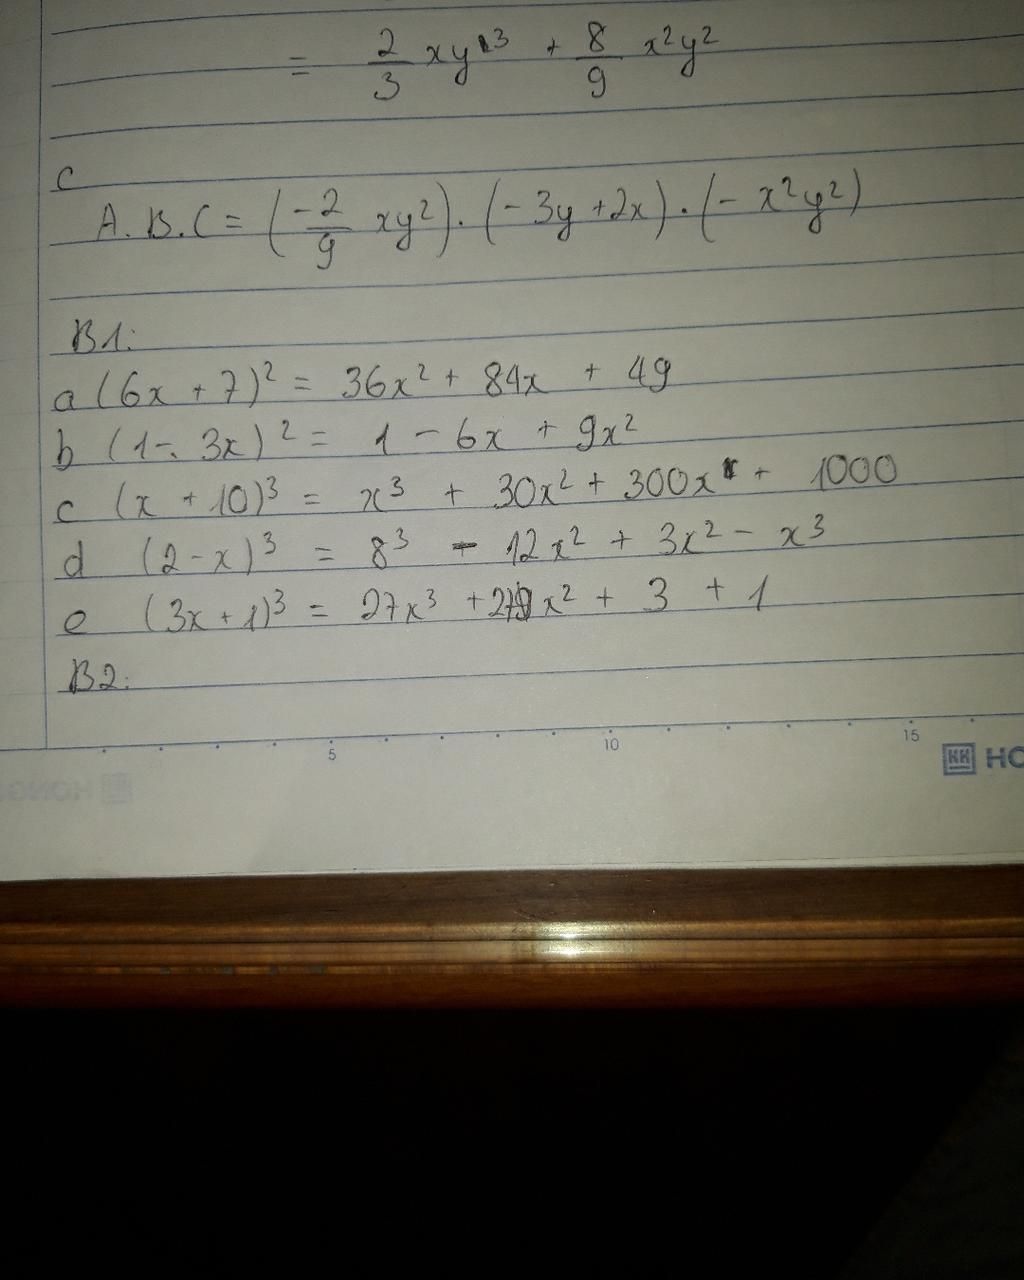 = 2/3 xy³ + 8/9 x²y²
c
A.B.C = (-2/9 xy²).(-3y+2x).(-x²y²)
B1:
a (6x + 7)² = 36x² + 84x + 49
b (1-. 3x)² = 1 - 6x + 9x²
c (x + 10)³ = x³ + 30x² + 300x + 1000
d (2-x)³ = 8³ - 12x² + 3x² - x³
e (3x+1)³ = 27x³ + x² + 3 + 1
B2:
5 10 15
KK HO